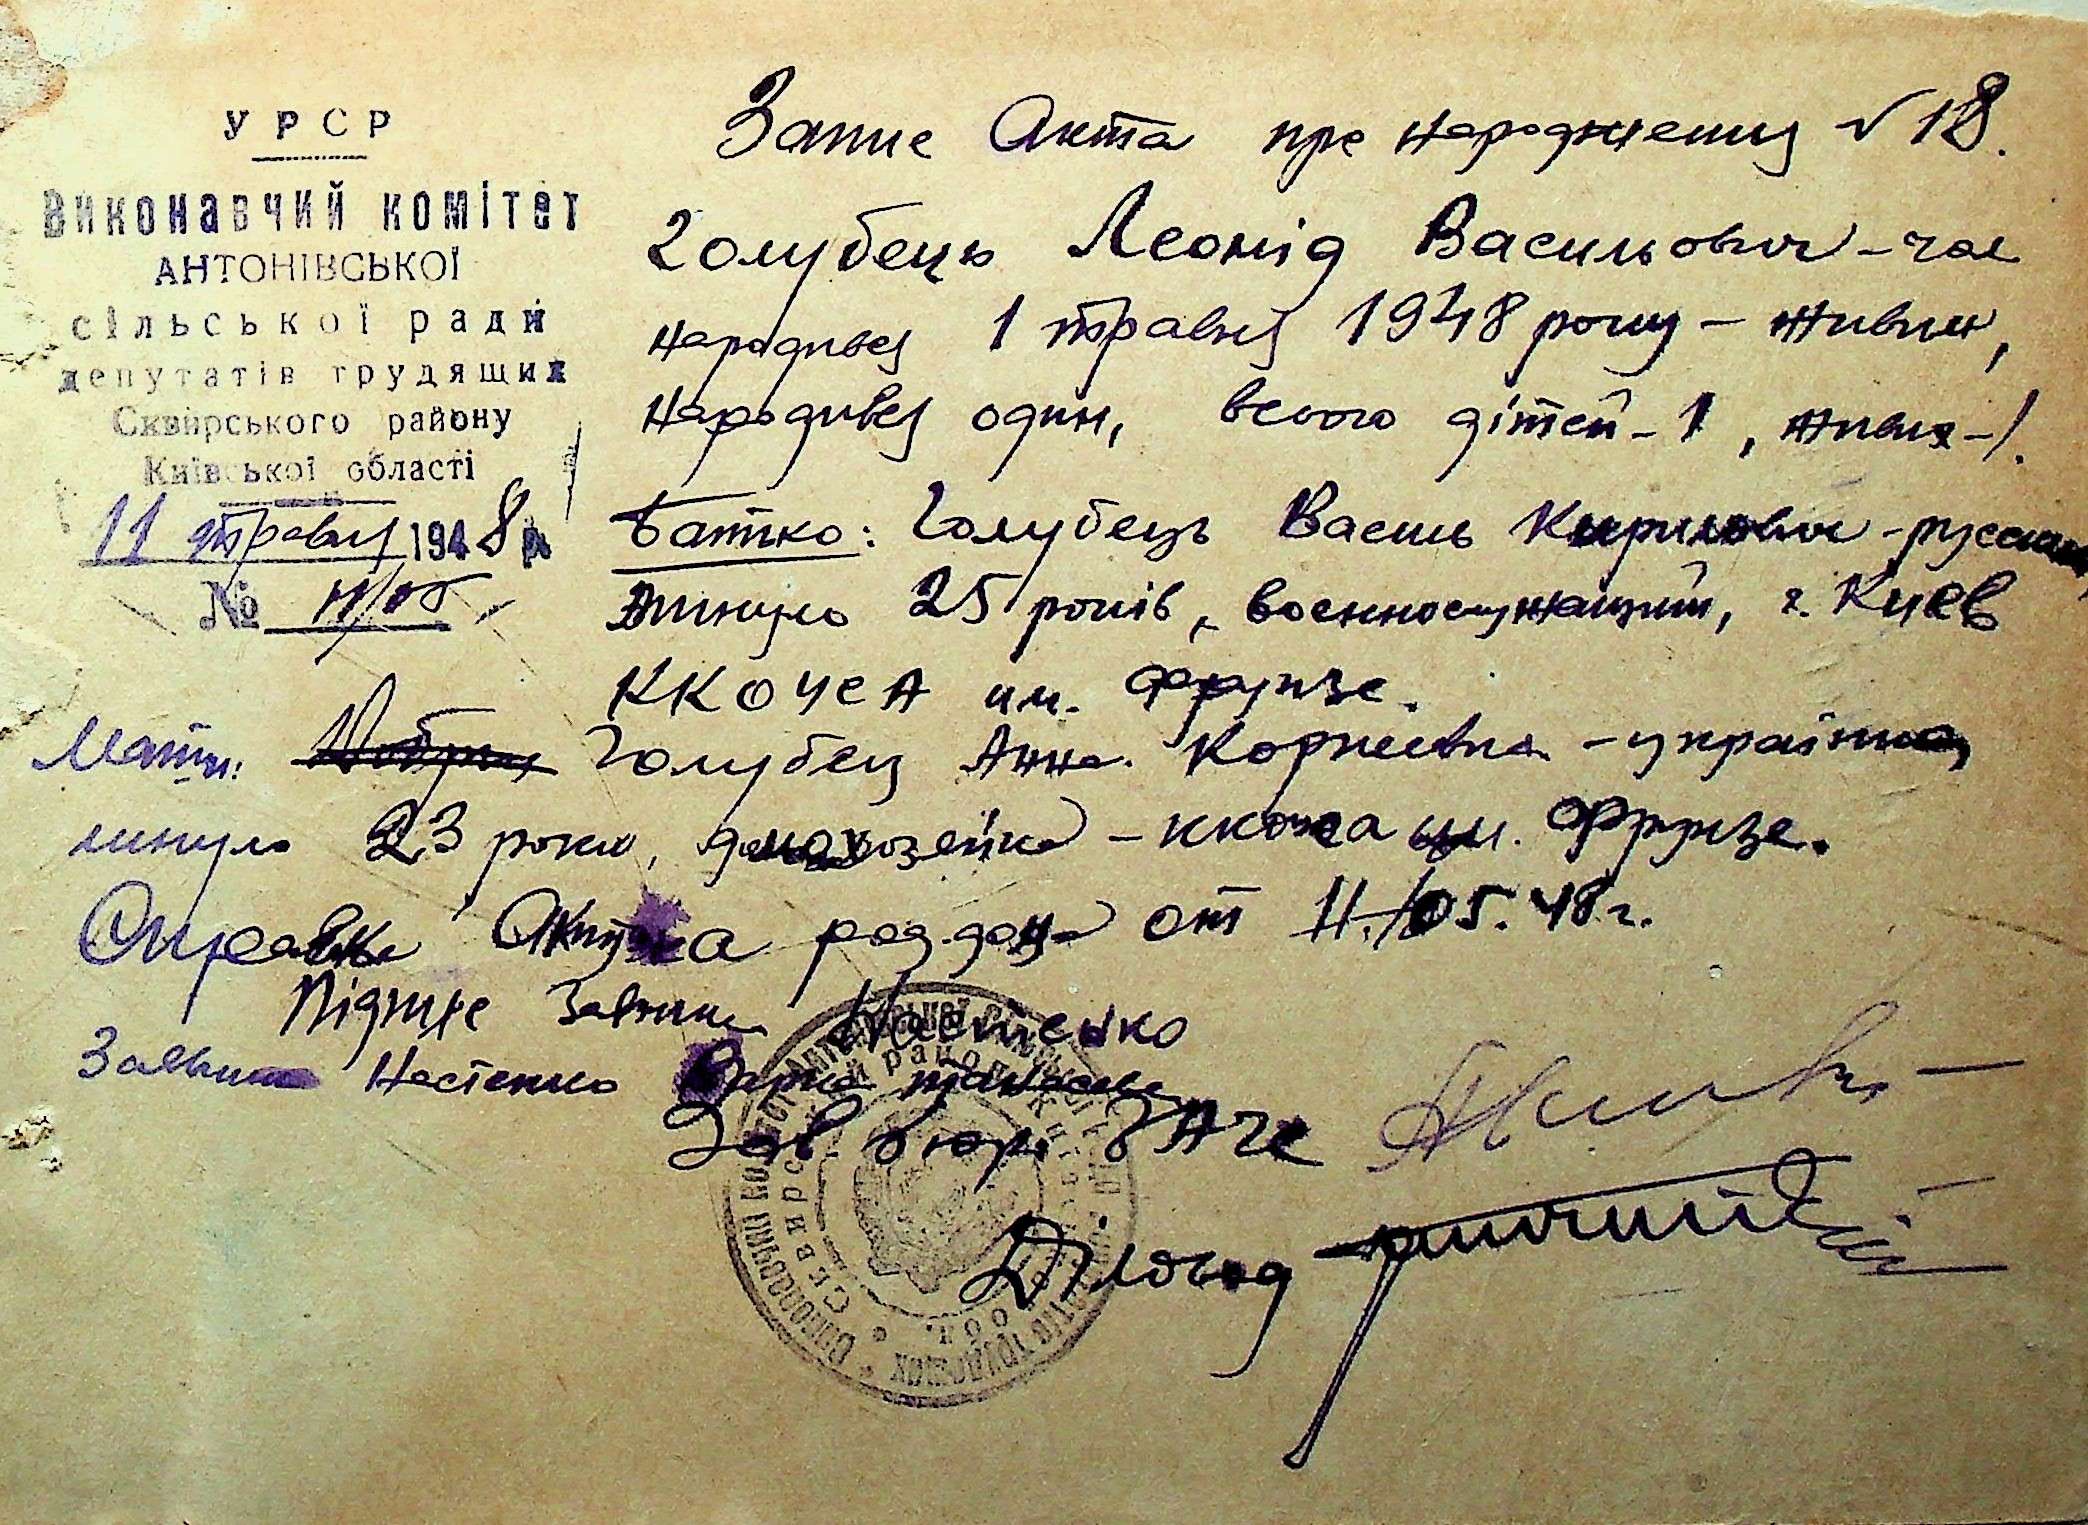 УРСР
Виконавчий комітет
АНТОНІВСЬКОЇ
сільської ради
депутатів трудящих
Сквирського району
Київської області
11 травня 1948 р.
№ 11/05
Запис Акта про народження № 18.
Голубець Леонід Васильович - чол
народився 1 травня 1948 року - живим,
народився один, всього дітей - 1, живих - 1.
Батько: Голубець Василь Кирилович - русский,
минуло 25 років, военнослужащий, г. Киев
ККОЧСА им. Фрунзе.
Мати: Голубец Анна Корнеевна - українка
минуло 23 роки, домохозейка - ккочса им. Фрунзе.
Справка от 11/05.48 г.
Підпис Настенко
Настенко
Зав бюро ЗАГС
Діловод